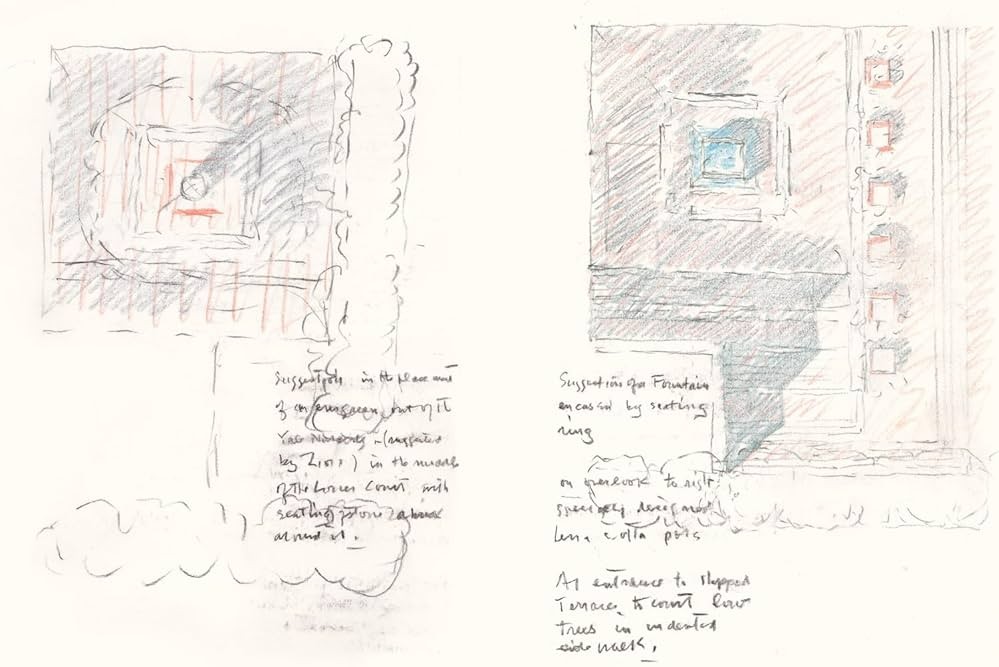 Suggestion in the placement
of an evergreen out of the
Yale Nursery (suggested
by Zion) in the middle
of the Lower Court with
seating stone
around it.
Suggestion of a Fountain
encased by seating
ring
on overlook to right
specially designed
terra cotta pots
As entrance to stepped
Terrace to court low
trees in indented
side walk.